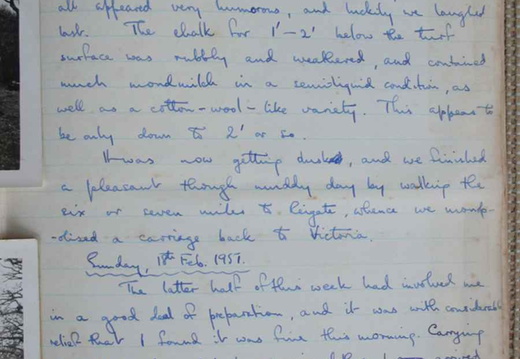 all appeared very humorous, and luckily we laughed
last. The chalk for 1'-2' below the turf
surface was rubbly and weathered, and contained
much mondmilch in a semiliquid condition, as
well as a cotton-wool-like variety. This appears to
be only down to 2' or so.
It was now getting dusk, and we finished
a pleasant though muddy day by walking the
six or seven miles to Reigate, whence we monop-
-olised a carriage back to Victoria.
Sunday, 18th Feb. 1951.
The latter half of this week had involved me
in a good deal of preparation, and it was with considerable
relief that I found it was fine this morning. Carrying